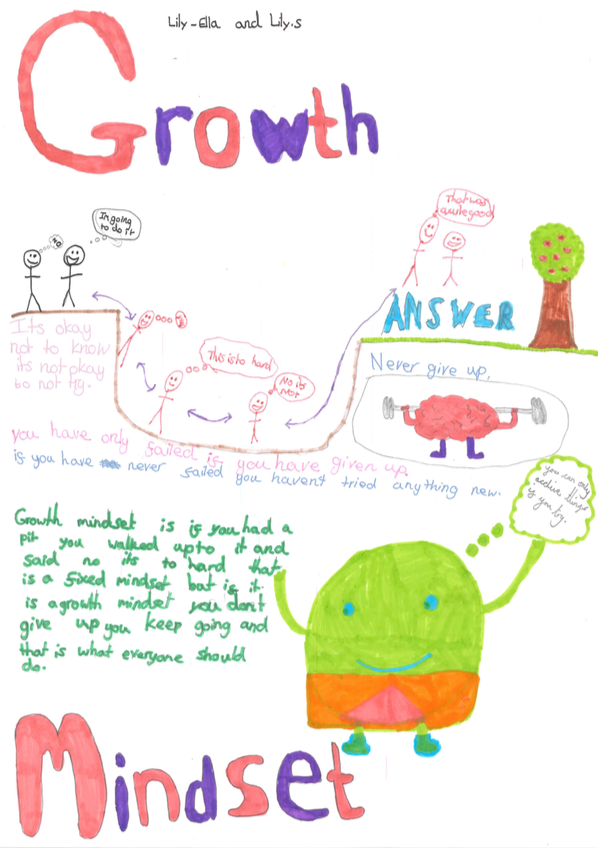 Lily-Ella and Lily.S
Growth
NO
Im going
to do it
That was
quite good
ANSWER
Its okay
not to know
its not okay
to not try.
This is to hard
No its
not
Never give up.
you have only failed if you have given up.
if you have never failed you havent tried anything new.
you can only
achive things
if you try.
Growth mindset is if you had a
pit you walked upto it and
said no its to hard that
is a fixed mindset but if it
is a growth mindset you don't
give up you keep going and
that is what everyone should
do.
Mindset